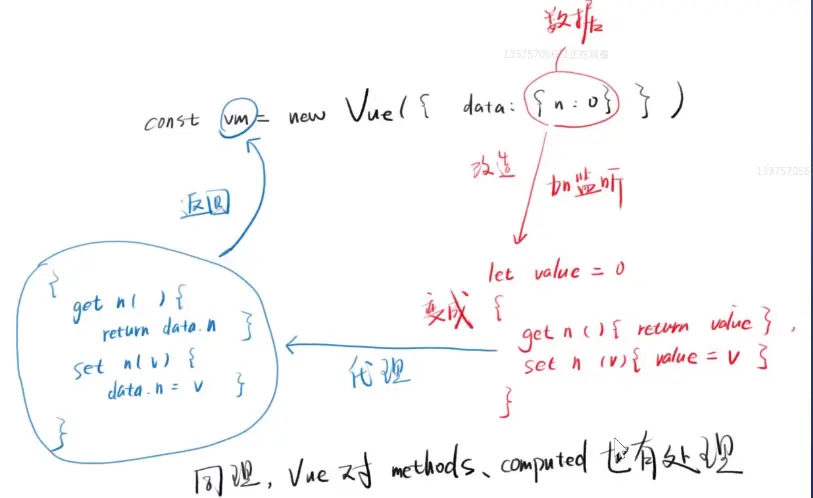 数据
正在观看
const vm = new Vue({ data: { n: 0 } })
改造
加监听
返回
let value = 0
变成
{
get n(){ return value } ,
set n (v){ value = v }
}
代理
{
get n( ){
return data.n
}
set n(v) {
data.n = v
}
}
133757056
同理, Vue 对 methods、computed 也有处理